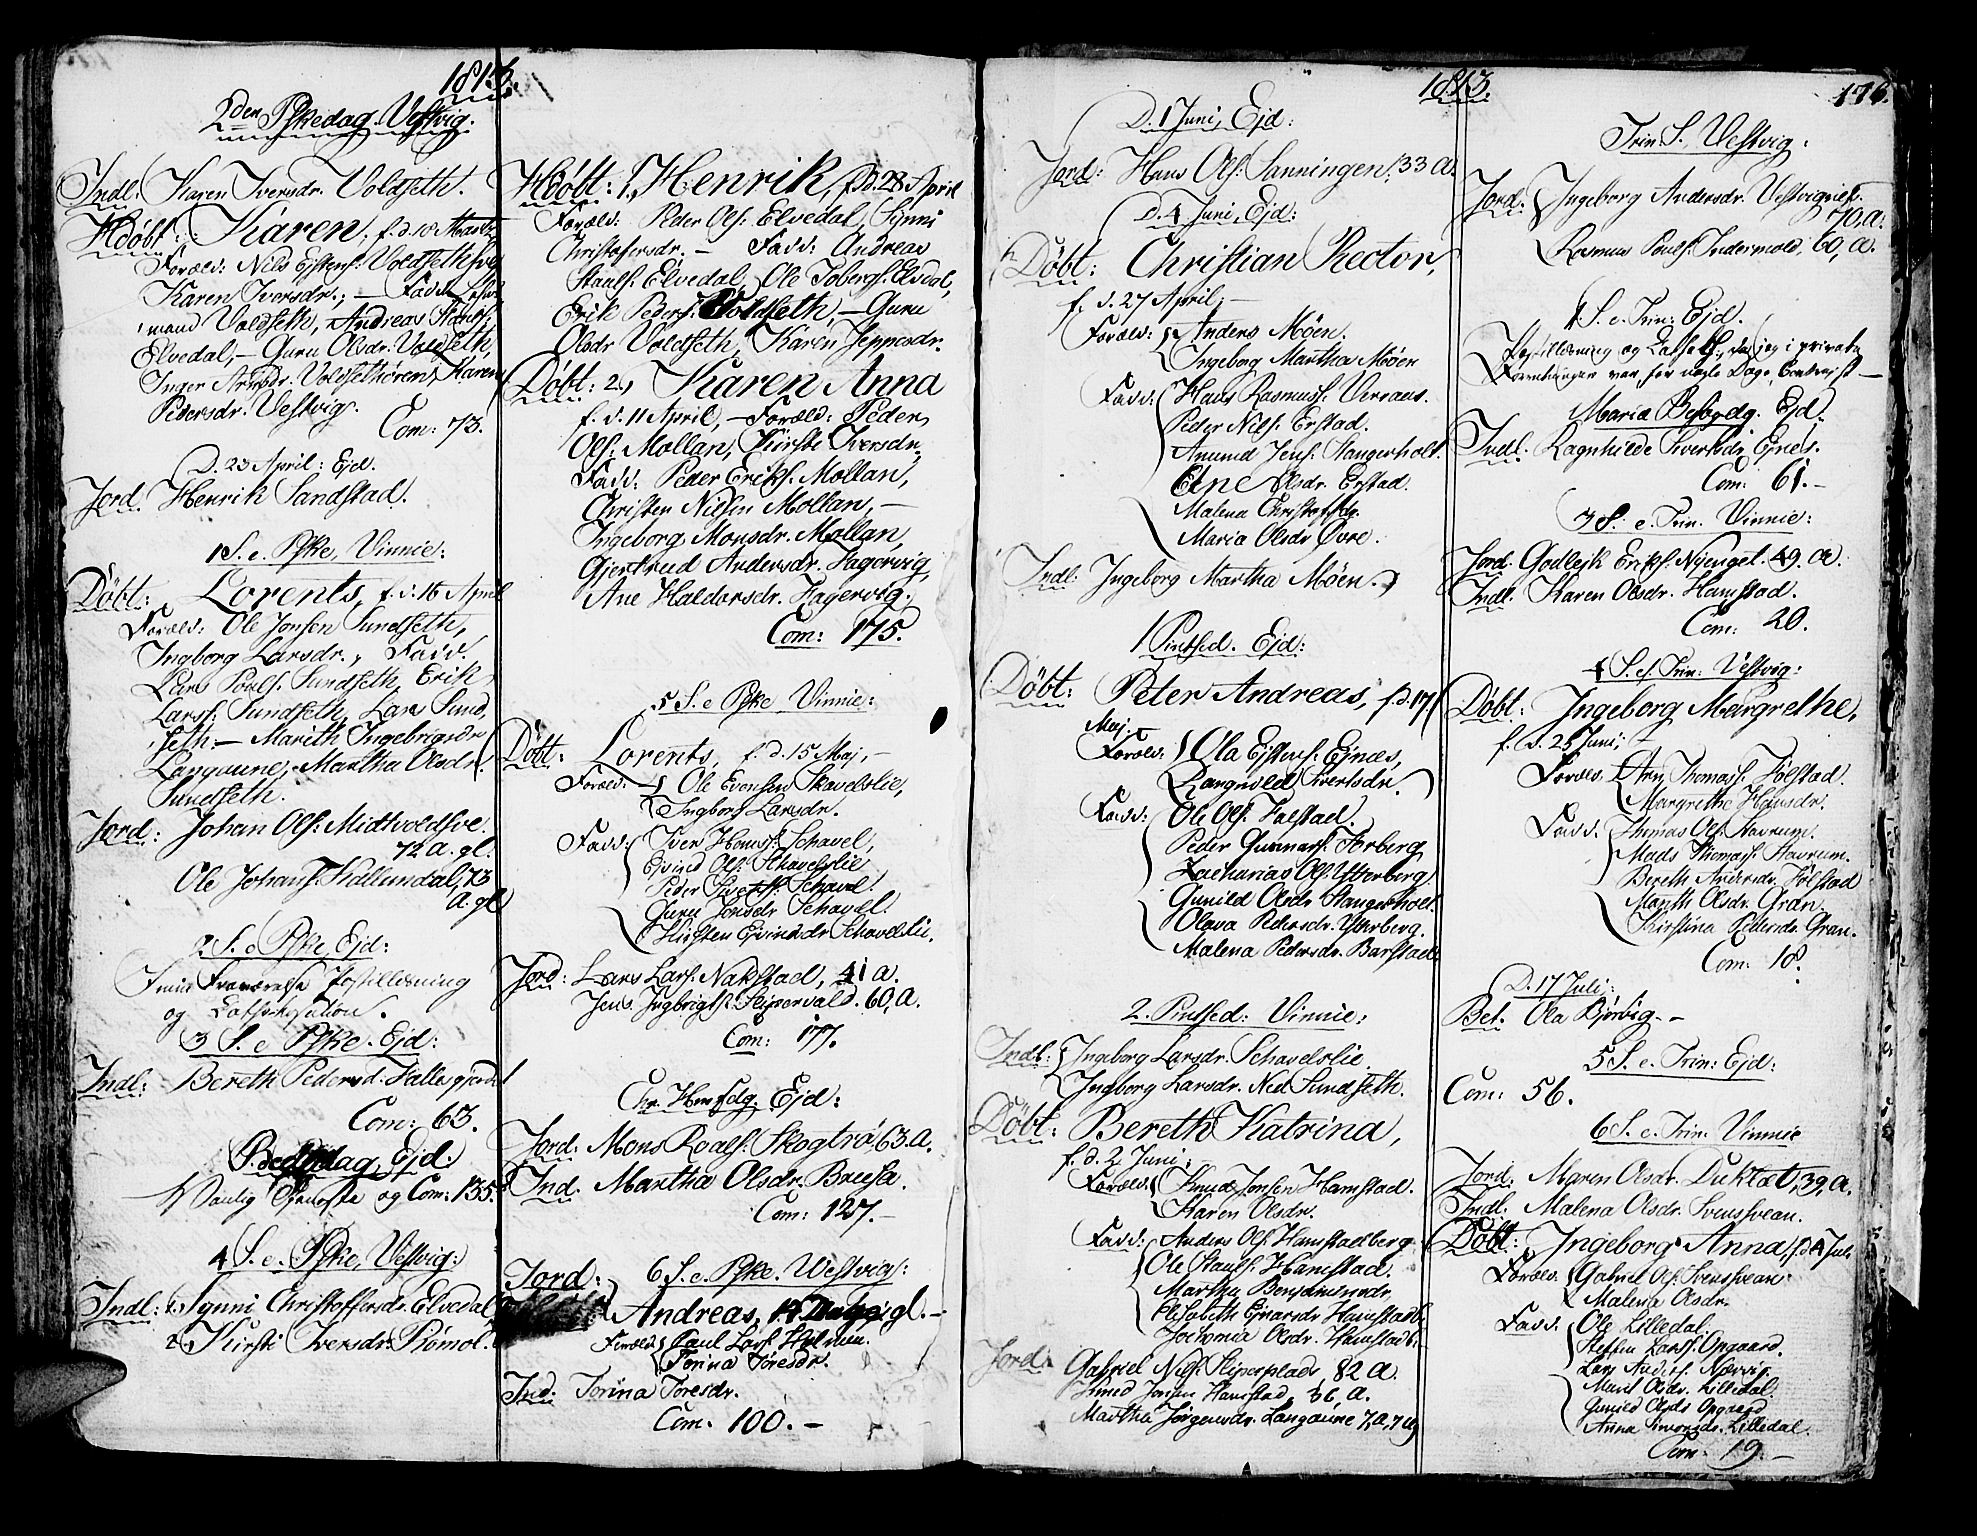 1813.
2den Pskedag. Vestvig:
Indl: Karen Iversdr. Voldseth.
Hdøbt: Karen, f. d. 18 Martz
Foræld: Nils Ejstens: Voldsethsve
Karen Iversdr.; — Fadd:
mand Voldseth, Andreas Staals:
Elvedal, — Guru Olsdr. Voldseth,
Inger Arnsdr. Voldsethøren, Karen
Pedersdr. Vestvig.
Com: 73.
D. 23 April: Ejd.
Jord. Henrik Sandstad.
1 S. e. Pske, Vinnie:
Døbt: Lorents, f. d. 16 April
Foræld: Ole Jonsen Sundseth,
Ingborg Larsdr., Fadd.
Lars Poals. Sundseth, Erik
Larss. Sundseth, Lars Sund,
seth: — Marith Ingebrigsdr
Langaune, Martha Olsdr.
Sundseth.
Jord: Johan Ols: Midtvoldsve.
72 a. gl.
Ole Johans. Kallundal, 73
a. gl
2. S. e Pske, Ejd:
Fraværelse Postillesning
og Catechisation.
3 S. e Pske. Ejd:
Indl: Bereth Pedersd. Fallesgjerdet
Com: 63.
Bededag, Ejd:
Vanlig Tieneste og Com: 135.
4 S. e. Pske, Vestvig:
Indl: 1. Synni Christoffersdr. Elvedal,
2. Kirsti Iversdr. Rømol.
Hdøbt: 1. Henrik, f. d. 28 April
Foræld: Peder Ols: Elvedal, Synni
Christofersdr. — Fadd: Andreas
Staals. Elvedal, Ole Tobergs. Elvdal,
Erik Peders: Voldseth, — Guru
Olsdr Voldseth, Karen Jeppesdr.
Døbt: 2., Karen Anna
f. d. 11 April, — Foræld: Peder
Ols: Mollan, Kirsti Iversdr.,
Fadd: Peder Eriks. Mollan,
Christen Nilsen Mollan, —
Ingeborg Monsdr. Mollan,
Gjertrud Andersdr. Hagervig,
Ane Haldorsdr. Hagervig.
Com: 175.
5 S. e Pske Vinnie:
Døbt: Lorents, f. d. 15 Maj, —
Foræld: Ole Evensen Skavelslie,
Ingborg Larsdr.
Fadd: Iver Hans: Schavel,
Ejvind Ols: Schavelslie
Peder Schavel.
Guru Jonsdr Schavel.
Kirsten Ejvindsdr Schavelslie.
Jord: Lars Lars: Nakstad, 41 a.
Jens Ingbrigts: Slipervald. 60, a.
Com: 177.
Chr. Hemfdg. Ejd:
Jord: Mons Roals: Skogtrø, 63. a.
Ind. Martha Olsdr. Breesa.
Com: 127. —
6 S. e. Pske. Westvig:
Jord: Andreas, gl. —
Foræld: Paul Lars: Holmen.
Torina Toresdr.
Ind: Torina Toresdr.
Com. 100. —
1813.
D. 1 Juni, Ejd:
Jord: Hans Ols: Sanningen, 33 a.
D. 4 Juni, Ejd:
Døbt: Christian Rector,
f. d. 27 April; —
Foræld: Anders Møen.
Ingeborg Martha Møen
Fadd: Hans Rasmuss: Veraas.
Peder Nils: Erstad.
Amund Jens: Hangerholt.
Elne Olsdr. Erstad.
Malena Christoffdr.
Maria Olsdr Øvre.
Indl: Ingeborg Martha Møen.
1 Pintsed. Ejd:
Døbt: Peter Andreas, f. d. 17
Maj.
Foræld: Ola Ejstens: Ejnes,
Rangnild Ivertsdr.
Fadd: Ole Ols: Halstad.
Peder Gunnars: Torberg
Zacharias Ols: Ytterberg
Gunild Olsdr Hangerholt.
Olava Pedersdr. Ytterberg.
Malena Pedersdr. Barstad.
2. Pintsed: Vinnie:
Indl: Ingeborg Larsdr. Schavelslie.
Ingeborg Larsdr. Ned Sundseth.
Døbt: Bereth Katrina,
f. d. 2 Juni;
Foræld: Knud Jonsen Hamstad.
Karen Olsdr.
Fadd: Anders Ols: Hamstadberg.
Ole Staals: Hamstad.
Martha Benjaminsdr,
Elisabeth Ejnarsdr Hamstadb.
Jochomia Olsdr. Hamstadb.
Jord. Gabriel Nils: Sliperplads, 82 a.
Knud Jonsen Hamstad, 36, a.
Martha Jørgensdr. Langaune 7, a, 7
176.
Trin S. Vestvig:
Jord: Ingeborg Andersdr. Vestvigeie.
70, a:
Rasmus Pouls: Indermold, 60, a.
1. S. e. Trin: Ejd.
Postillesning og Catech:, da jeg i private
Forretninger var for nogle Dage, bortrejst —
Maria Besøgdg. Ejd.
Indl: Ragnhilde Ivertsdr. Ejnes.
Com: 61. —
3 S. e. Trin. Vinnie:
Jord: Godlejk Eriks: Nyenget. 49. a.
Indl. Karen Olsdr. Hamstad.
Com: 20.
4 S. e. Trin: Vestvig:
Døbt: Ingeborg Margrethe,
f. d. 25 Juni;
Foræld. Arn Thomass: Følstad.
Margrethe Hansdr.
Fadd. Thomas Ols: Havrum.
Mads Thomass: Havrum.
Bereth Andersdr. Følstad
Marith Olsdr. Gran.
Kirstina Pettersdr. Gran.
Com: 18.
D. 17 Juli:
Bet. Ola Bjørvig. —
5 S. e. Trin: Ejd:
Com: 56.
6 S. e. Trin: Vinnie
Jord: Maren Olsdr. Duktæt, 39, a.
Indl: Malena Olsdr. Svensvean.
Døbt: Ingeborg Anna, f d 4 Juli
Foræld: Gabriel Ols: Svensvean:
Malena Olsdr.
Fadd: Ole Lilledal.
Steffen Larss: Opgaard.
Lars And:s: Nervig.
Marit Olsdr. Lilledal.
Gunild Olsdr Opgaard
Anna Simonsdr. Lilledal.
Com: 19. —